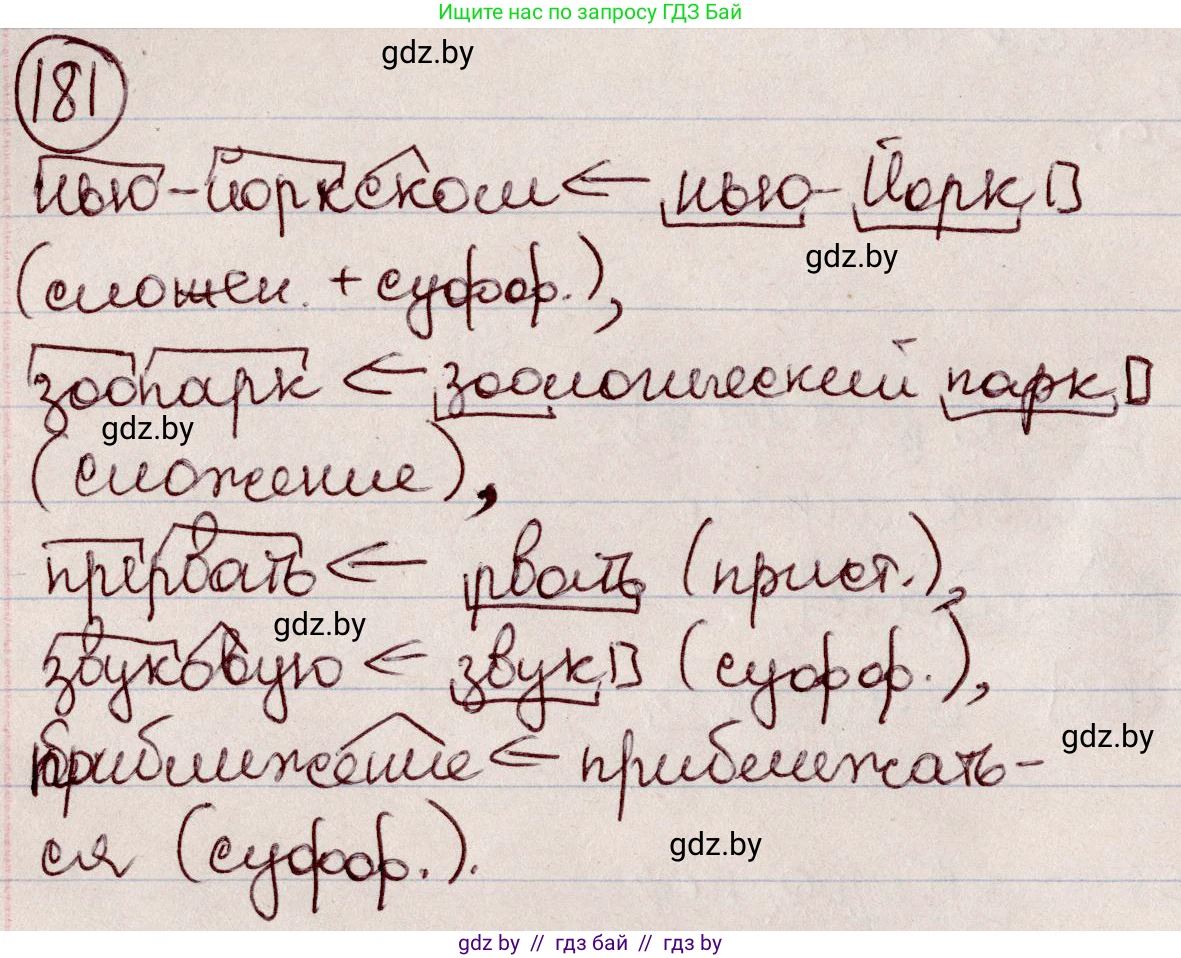 Ищите нас по запросу ГДЗ Бай
gdz.by
181
нью-йоркском ← нью-Йорк
gdz.by
(сложен. + суфф.),
зоопарк ← зоологический парк
gdz.by
(сложение),
прервать ← рвать (прист.),
gdz.by
звуковую ← звук (суфф.),
gdz.by
приближение ← приближать-
ся (суфф.).
gdz.by
gdz by // гдз бай // гдз by